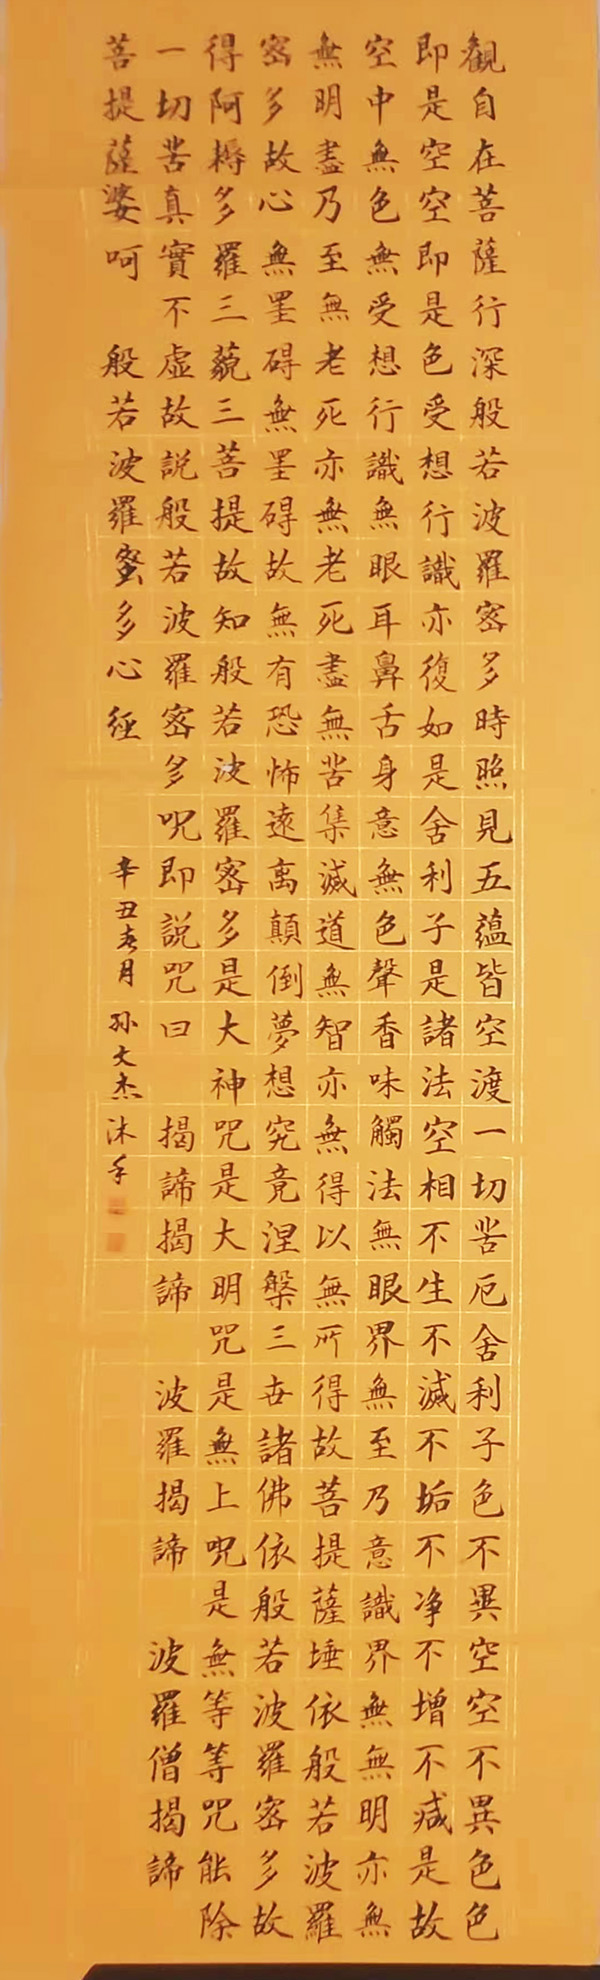 觀自在菩薩行深般若波羅密多時照見五蘊皆空渡一切苦厄舍利子色不異空空不異色色
即是空空即是色受想行識亦復如是舍利子是諸法空相不生不滅不垢不净不增不减是故
空中無色無受想行識無眼耳鼻舌身意無色聲香味觸法無眼界無至乃意識界無無明亦無
無明盡乃至無老死亦無老死盡無苦集滅道無智亦無得以無所得故菩提薩埵依般若波羅
密多故心無罣碍無罣碍故無有恐怖遠离顛倒夢想究竟涅槃三世諸佛依般若波羅密多故
得阿耨多羅三藐三菩提故知般若波羅密多是大神咒是大明咒是無上咒是無等等咒能除
一切苦真實不虛故説般若波羅密多咒即説咒曰 揭諦揭諦 波羅揭諦 波羅僧揭諦
菩提薩婆呵 般若波羅蜜多心經 辛丑春月 孙文杰沐手